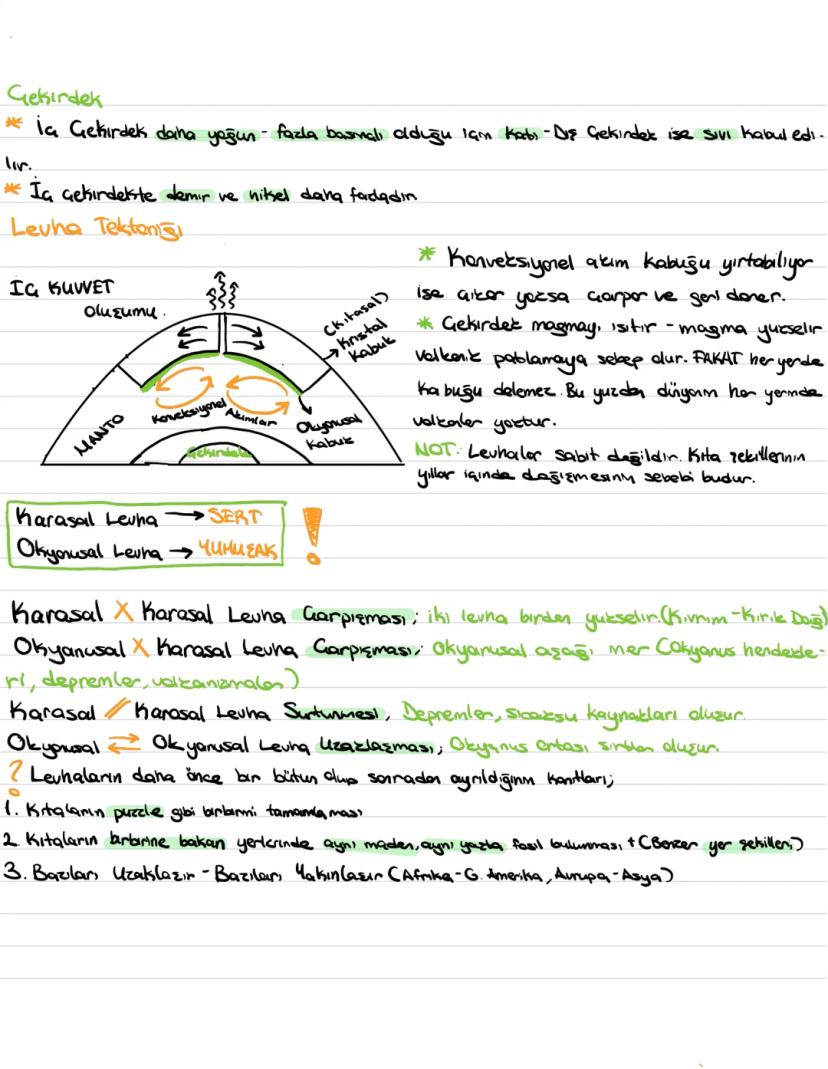 Çekirdek
* İç Çekirdek daha yoğun - fazla basınçlı olduğu için katı - Dış Çekirdek ise sıvı kabul edi-
lir.
* İç çekirdekte demir ve nikel daha fazladır
Levha Tektoniği
İÇ KUVVET
oluşumu.
(Kıtasal)
Kristal
Kabuk
MANTO
Konveksiyonel Akımlar
Okyanusal
Kabuk
Çekirdek
* Konveksiyonel akım kabuğu yırtabiliyor
ise çıkar yoksa çarpar ve geri döner.
* Çekirdek magmayı ısıtır - magma yükselir
volkanik patlamaya sebep olur. FAKAT her yerde
kabuğu delemez. Bu yüzden dünyanın her yerinde
volkanlar yoktur.
NOT: Levhalar sabit değildir. Kıta şekillerinin
yıllar içinde değişmesinin sebebi budur.
Karasal Levha → SERT
Okyanusal Levha → YUMUŞAK !
Karasal X Karasal Levha Çarpışması; iki levha birden yükselir.(Kıvrım-Kırık Dağ)
Okyanusal X Karasal Levha Çarpışması; Okyanusal aşağı iner (Okyanus hendekle-
ri, depremler, volkanizmalar)
Karasal // Karasal Levha Sürtünmesi, Depremler, sıcaksu kaynakları oluşur.
Okyanusal ⇄ Okyanusal Levha Uzaklaşması; Okyanus ortası sırtları oluşur.
? Levhaların daha önce bir bütün olup sonradan ayrıldığının kanıtları;
1. Kıtaların puzzle gibi birbirini tamamlaması
2. Kıtaların birbirine bakan yerlerinde aynı maden, aynı yaşta fosil bulunması + (Benzer yer şekilleri)
3. Bazıları Uzaklaşır - Bazıları Yakınlaşır (Afrika-G. Amerika, Avrupa-Asya)